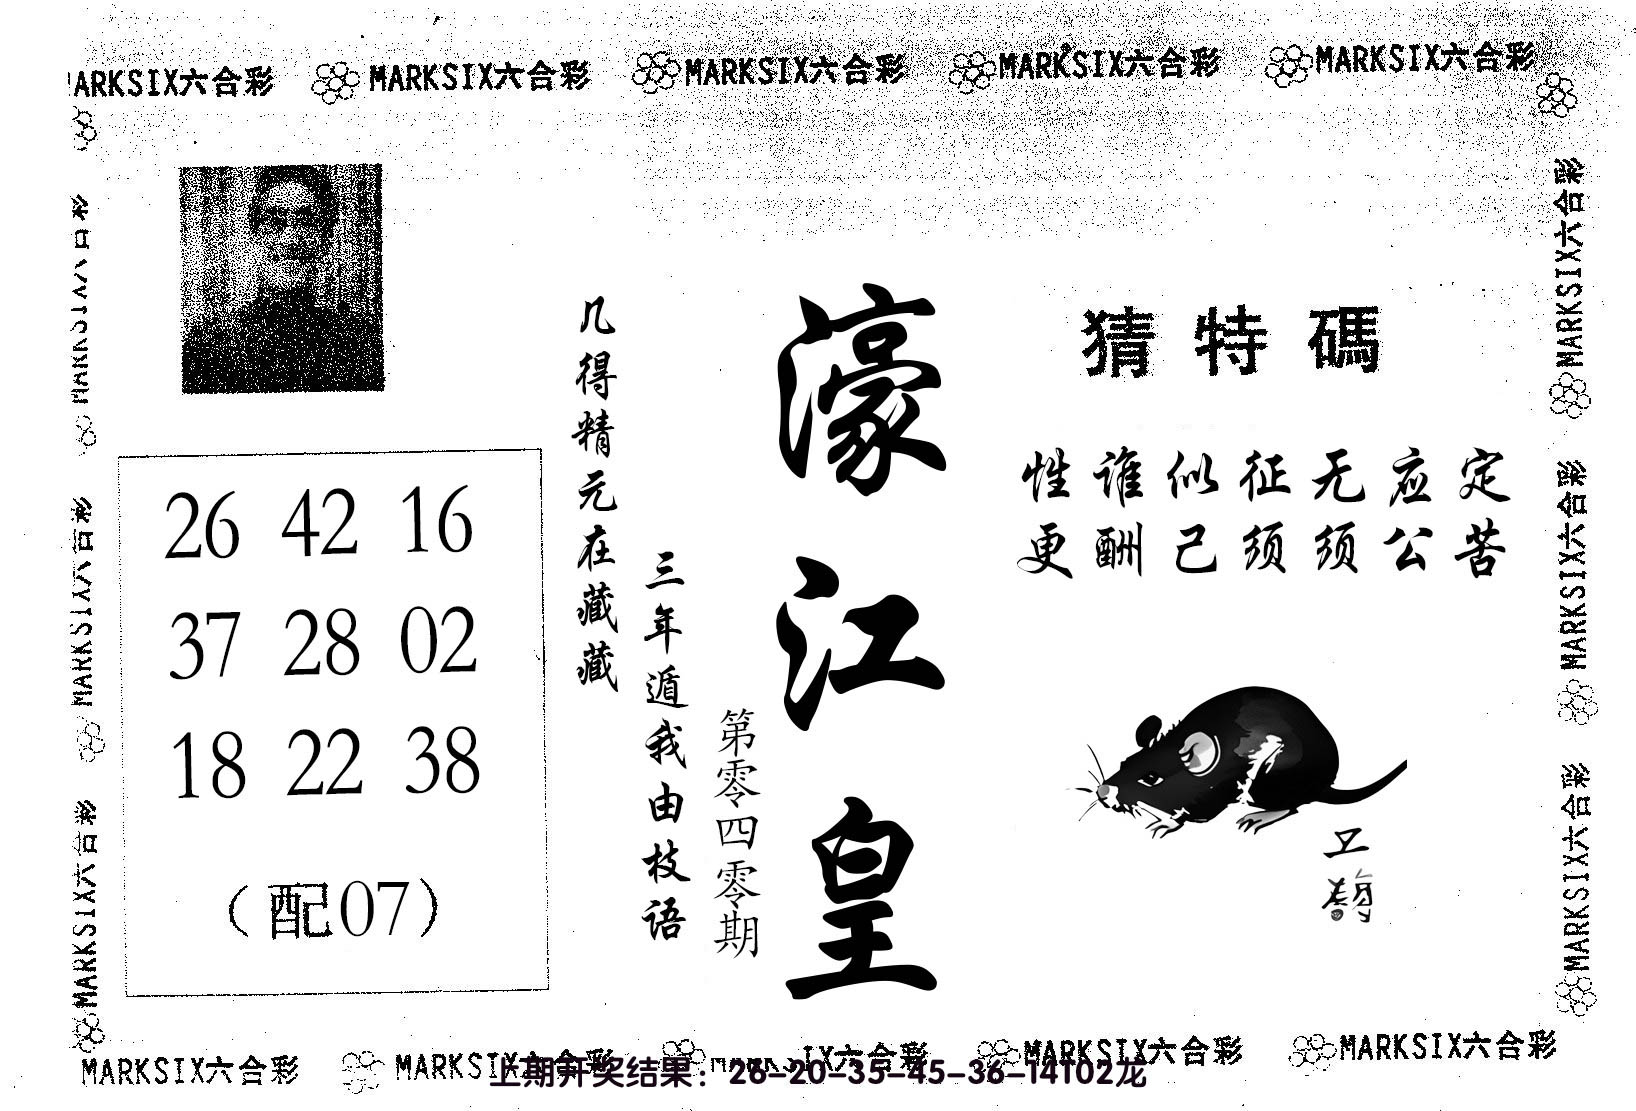 MARKSIX六合彩 MARKSIX六合彩 MARKSIX六合彩 MARKSIX六合彩 MARKSIX六合彩
猜特碼
性谁似征无应定
更酬己须须公苦
濠江皇
第零四零期
三年遁我由枝语
几得精元在藏藏
26 42 16
37 28 02
18 22 38
（配07）
MARKSIX六合彩
MARKSIX六合彩
MARKSIX六合彩
MARKSIX六合彩
MARKSIX六合彩
MARKSIX六合彩
MARKSIX六合彩 MARKSIX六合彩 MARKSIX六合彩 MARKSIX六合彩 MARKSIX六合彩
上期开奖结果：26-20-35-45-36-14T02龙